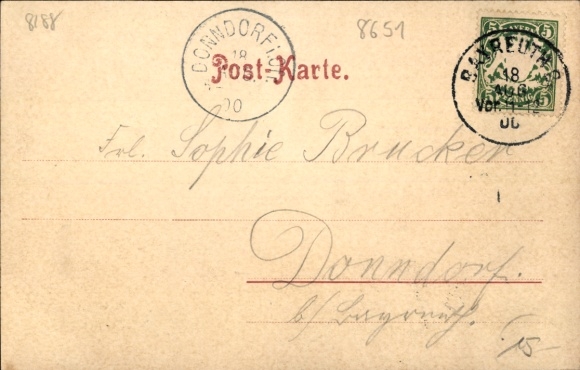 8188
8651
DONNDORF
18
00
Post-Karte.
5 BAYERN 5
BAYREUTH
18
AUG
Vor.
00
Frl. Sophie Brucker
Donndorf.
b/Bayreuth.
15